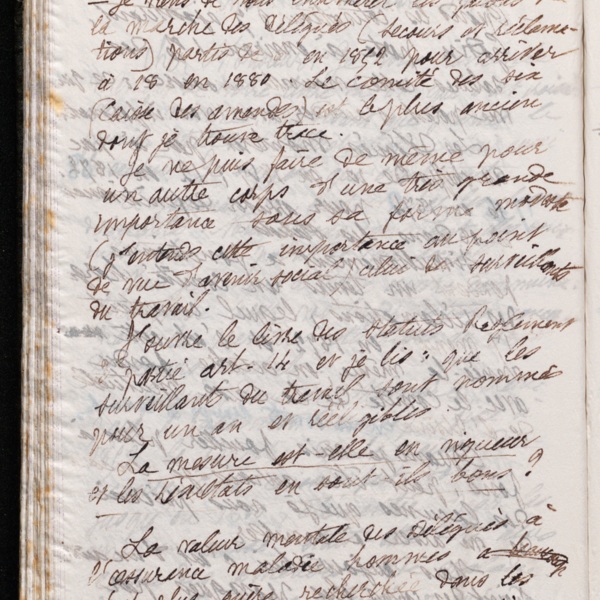 – Je viens de vous énumérer les
la marche des délégués (secours et réclama-
tions) partis de 5 en 1862 pour arriver
à 18 en 1880. Le comité des six
(caisse des amendes) est le plus ancien
dont je trouve trace.
Je ne puis faire de même pour
un autre corps d'une très grande
importance sous sa forme modeste
(j'entends cette importance au point
de vue d'avenir social) celui des surveillants
du travail.
J'ouvre le livre des statuts Reglement
partie art. 14 et je lis: que les
surveillants du travail sont nommés
pour un an et rééligibles.
La mesure est-elle en vigueur
et les résultats en sont ils bons?
La valeur mentale des Délégués à
l'assurance maladie hommes a
plus guère recherchée dans les